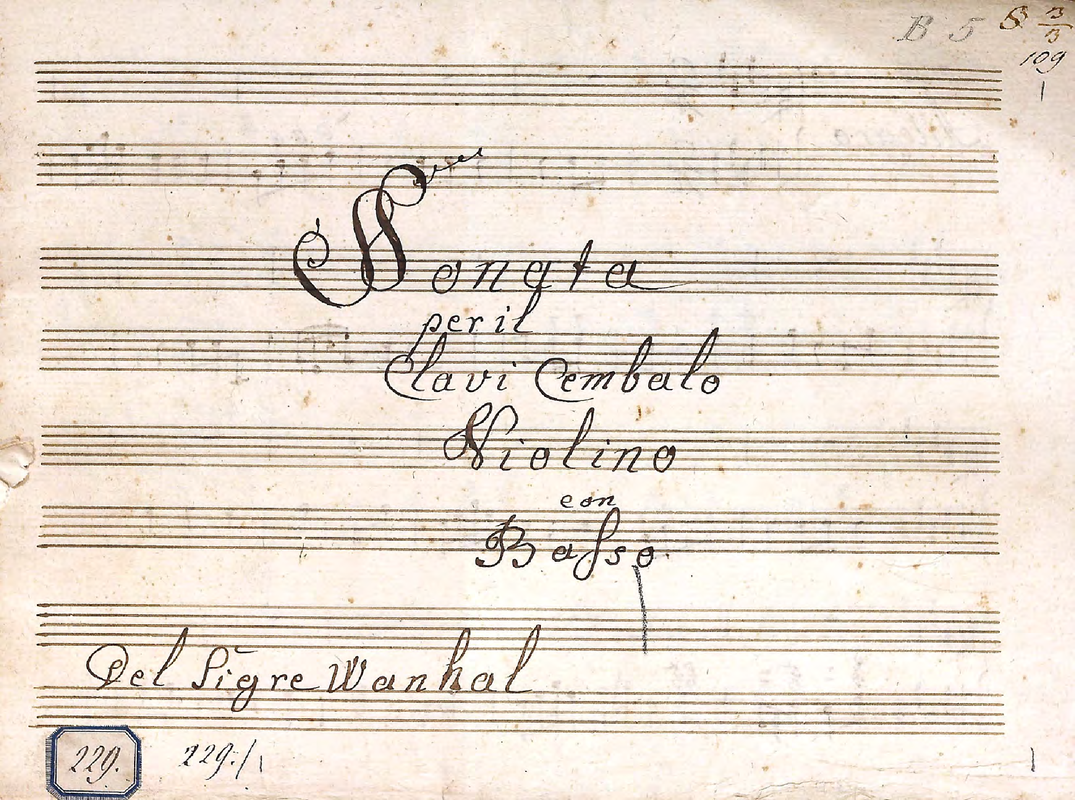 B 5 8 3/3
109
1
Sonata
per il
Clavi Cembalo
Violino
con
Baſso.
Del Sigre Wanhal
229. 229./1
1